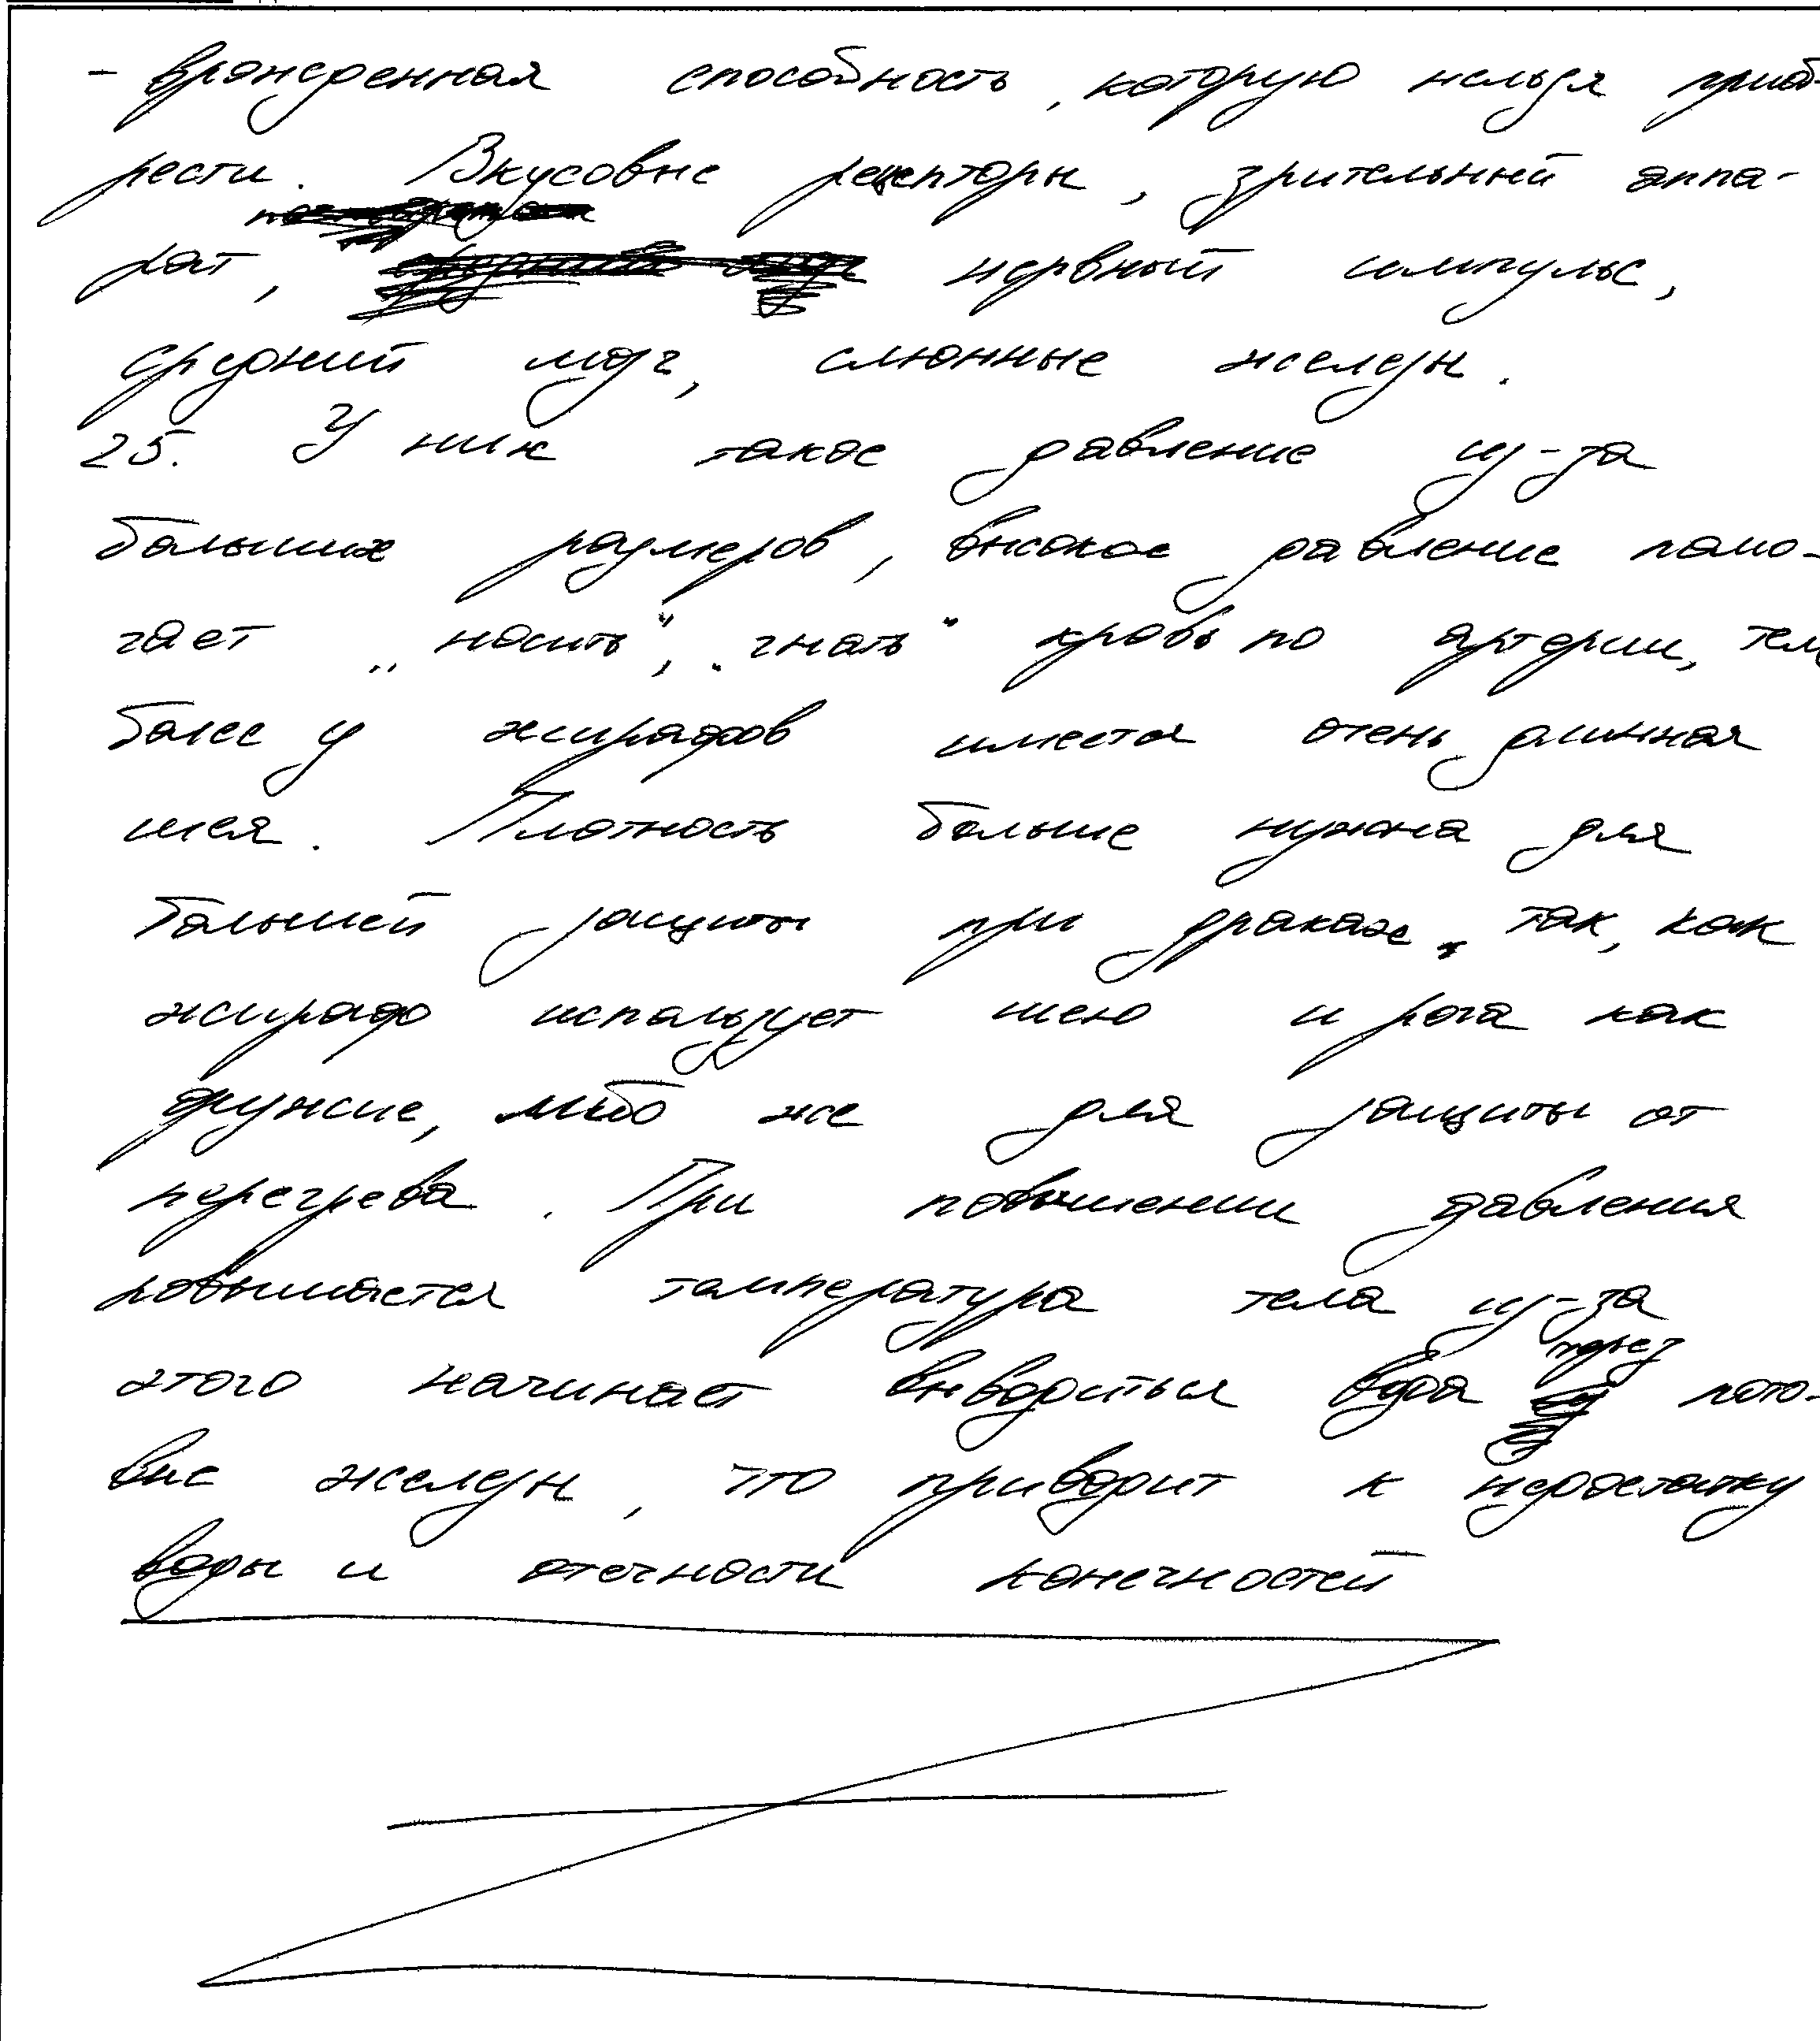 - врожденная способность, которую нельзя приоб-
рести. Вкусовые рецепторы, зрительный аппа-
рат, нервный импульс,
средний мозг, слюнные железы.
25. У них такое давление из-за
больших размеров, высокое давление помо-
гает „носить", „гнать" кровь по артерии, тем
более у жирафов имеется очень длинная
шея. Плотность больше нужна для
большей защиты при драках, так, как
жираф использует шею и рога как
оружие, либо же для защиты от
перегрева. При повышении давления
повышается температура тела из-за
этого начинает выводиться вода через пото-
вые железы, что приводит к недостатку
воды и отечности конечностей